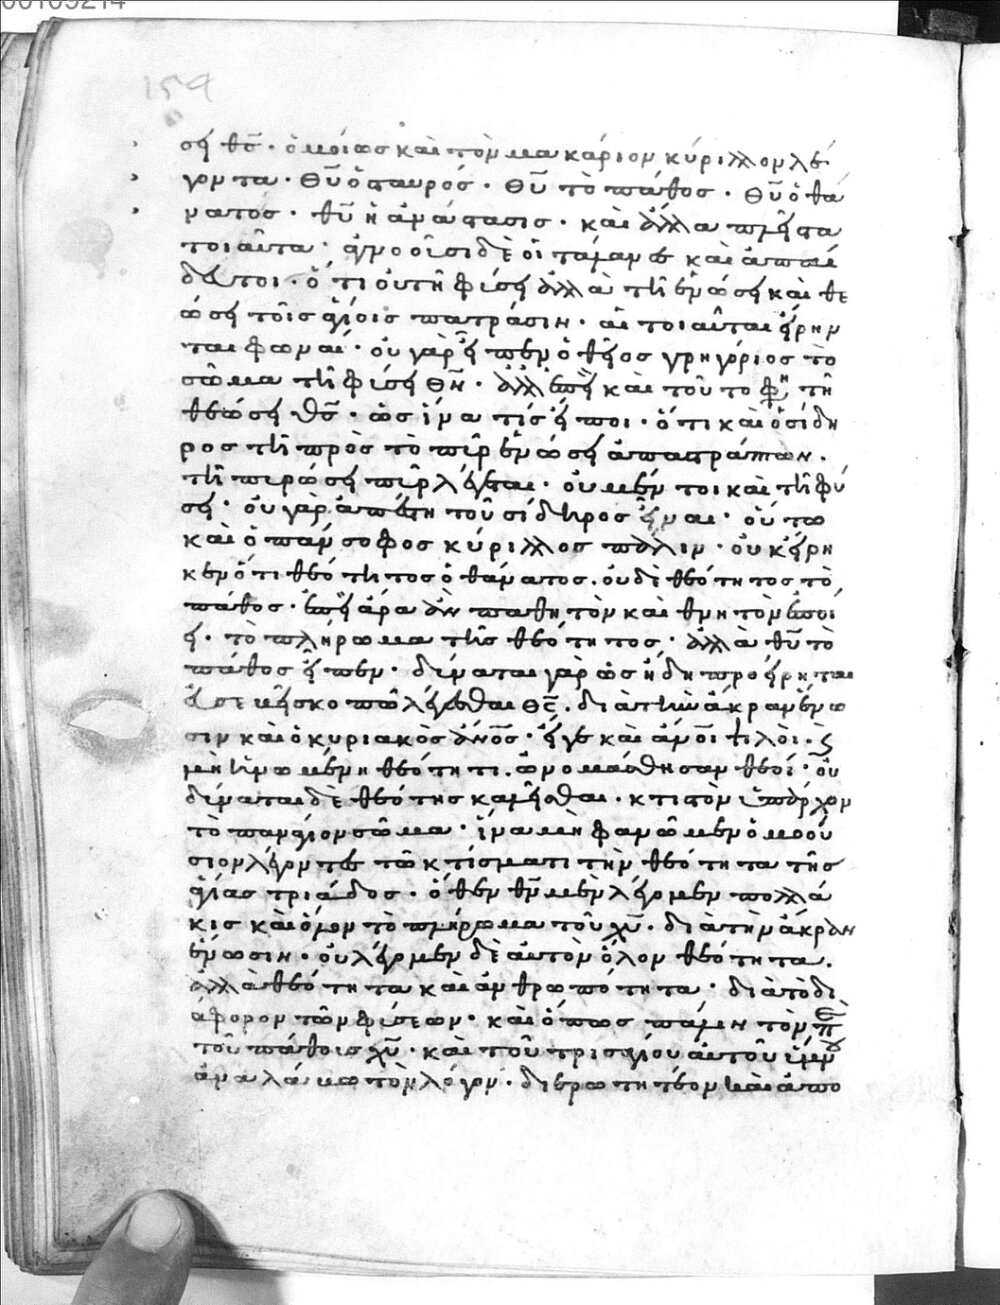 159
ση θς̄· ὁμοίως καὶ τὸν μακάριον κύριλλον λέ
γοντα· θῡ ὁ σταυρός· θῡ τὸ πάθος· θῡ ὁ θά
νατος· θῡ ἡ ἀνάστασις· καὶ ἄλλα πλεῖστα
τοιαῦτα· ἀγνοοῦσι δὲ οἱ τάλανες καὶ ἀπαί
δευτοι· ὅτι οὐ τῆ φύσει ἀλλὰ τῆ ἑνώσει καὶ θε
ώσει τοῖς ἁγίοις πατράσιν· αἱ τοιαῦται εἴρην
ται φωναί· οὐ γὰρ εἶπεν ὁ θεῖος γρηγόριος τὸ
σῶμα τῆ φύσει θν̄· ἀλλ' ἐπεὶ καὶ τοῦτο φη τῆ
θεώσει θς̄· ὡς ἵνα τίς εἴποι· ὅτι καὶ ὁ σίδη
ρος τῆ πρὸς τὸ πῦρ ἑνώσει ἀπαστράπτων·
τῆ πυρώσει πῦρ λέγεται· οὐ μέν τοι καὶ τῆ φύ
σει· οὐ γὰρ ἀπέστη τοῦ σίδηρος εἶναι· οὕτω
καὶ ὁ πάνσοφος κύριλλος πάλιν· οὐκ εἴρη
κεν ὅτι θεότητος ὁ θάνατος· οὐδὲ θεότητος τὸ
πάθος· ἐπεὶ ἄρα ἂν παθητὸν καὶ θνητὸν ἐποί
ει· τὸ πλήρωμα τῆς θεότητος· ἀλλὰ θῡ τὸ
πάθος εἶπεν· δύναται γὰρ ὡς ἤδη προείρηται
λέγεσθαι θς̄· διὰ τὴν ἄκραν ἕνω
σιν καὶ ὁ κυριακὸς ἄνος̄· εἴγε καὶ ἄνοι ψιλοί·
μὴ ἡνωμένη θεότητι· ὠνομάσθησαν θεοί· οὐ
δύναται δὲ θεότης καλεῖσθαι· κτιστὸν ὑπάρχον
τὸ πανάγιον σῶμα· ἵνα μὴ φανῶμεν ὁμοού
σιον λέγοντες τῶ κτίσματι τὴν θεότητα τῆς
ἁγίας τριάδος· ὅθεν θν̄ μὲν λέγομεν πολλά
κις καὶ ὅλον τὸ πλήρωμα τοῦ χῡ· διὰ τὴν ἄκραν
ἕνωσιν· οὐ λέγομεν δὲ αὐτὸν ὅλον θεότητα·
ἀλλὰ θεότητα καὶ ἀνθρωπότητα· διὰ τὸ δι
άφορον τῶν φύσεων· καὶ ὅπως πάλιν τὸν περὶ
τοῦ πάθους χῡ· καὶ τοῦ τρισαγίου αὐτοῦ ὕμνου
ἀναλάβω τὸν λόγον· διερωτητέον καὶ ἀπο